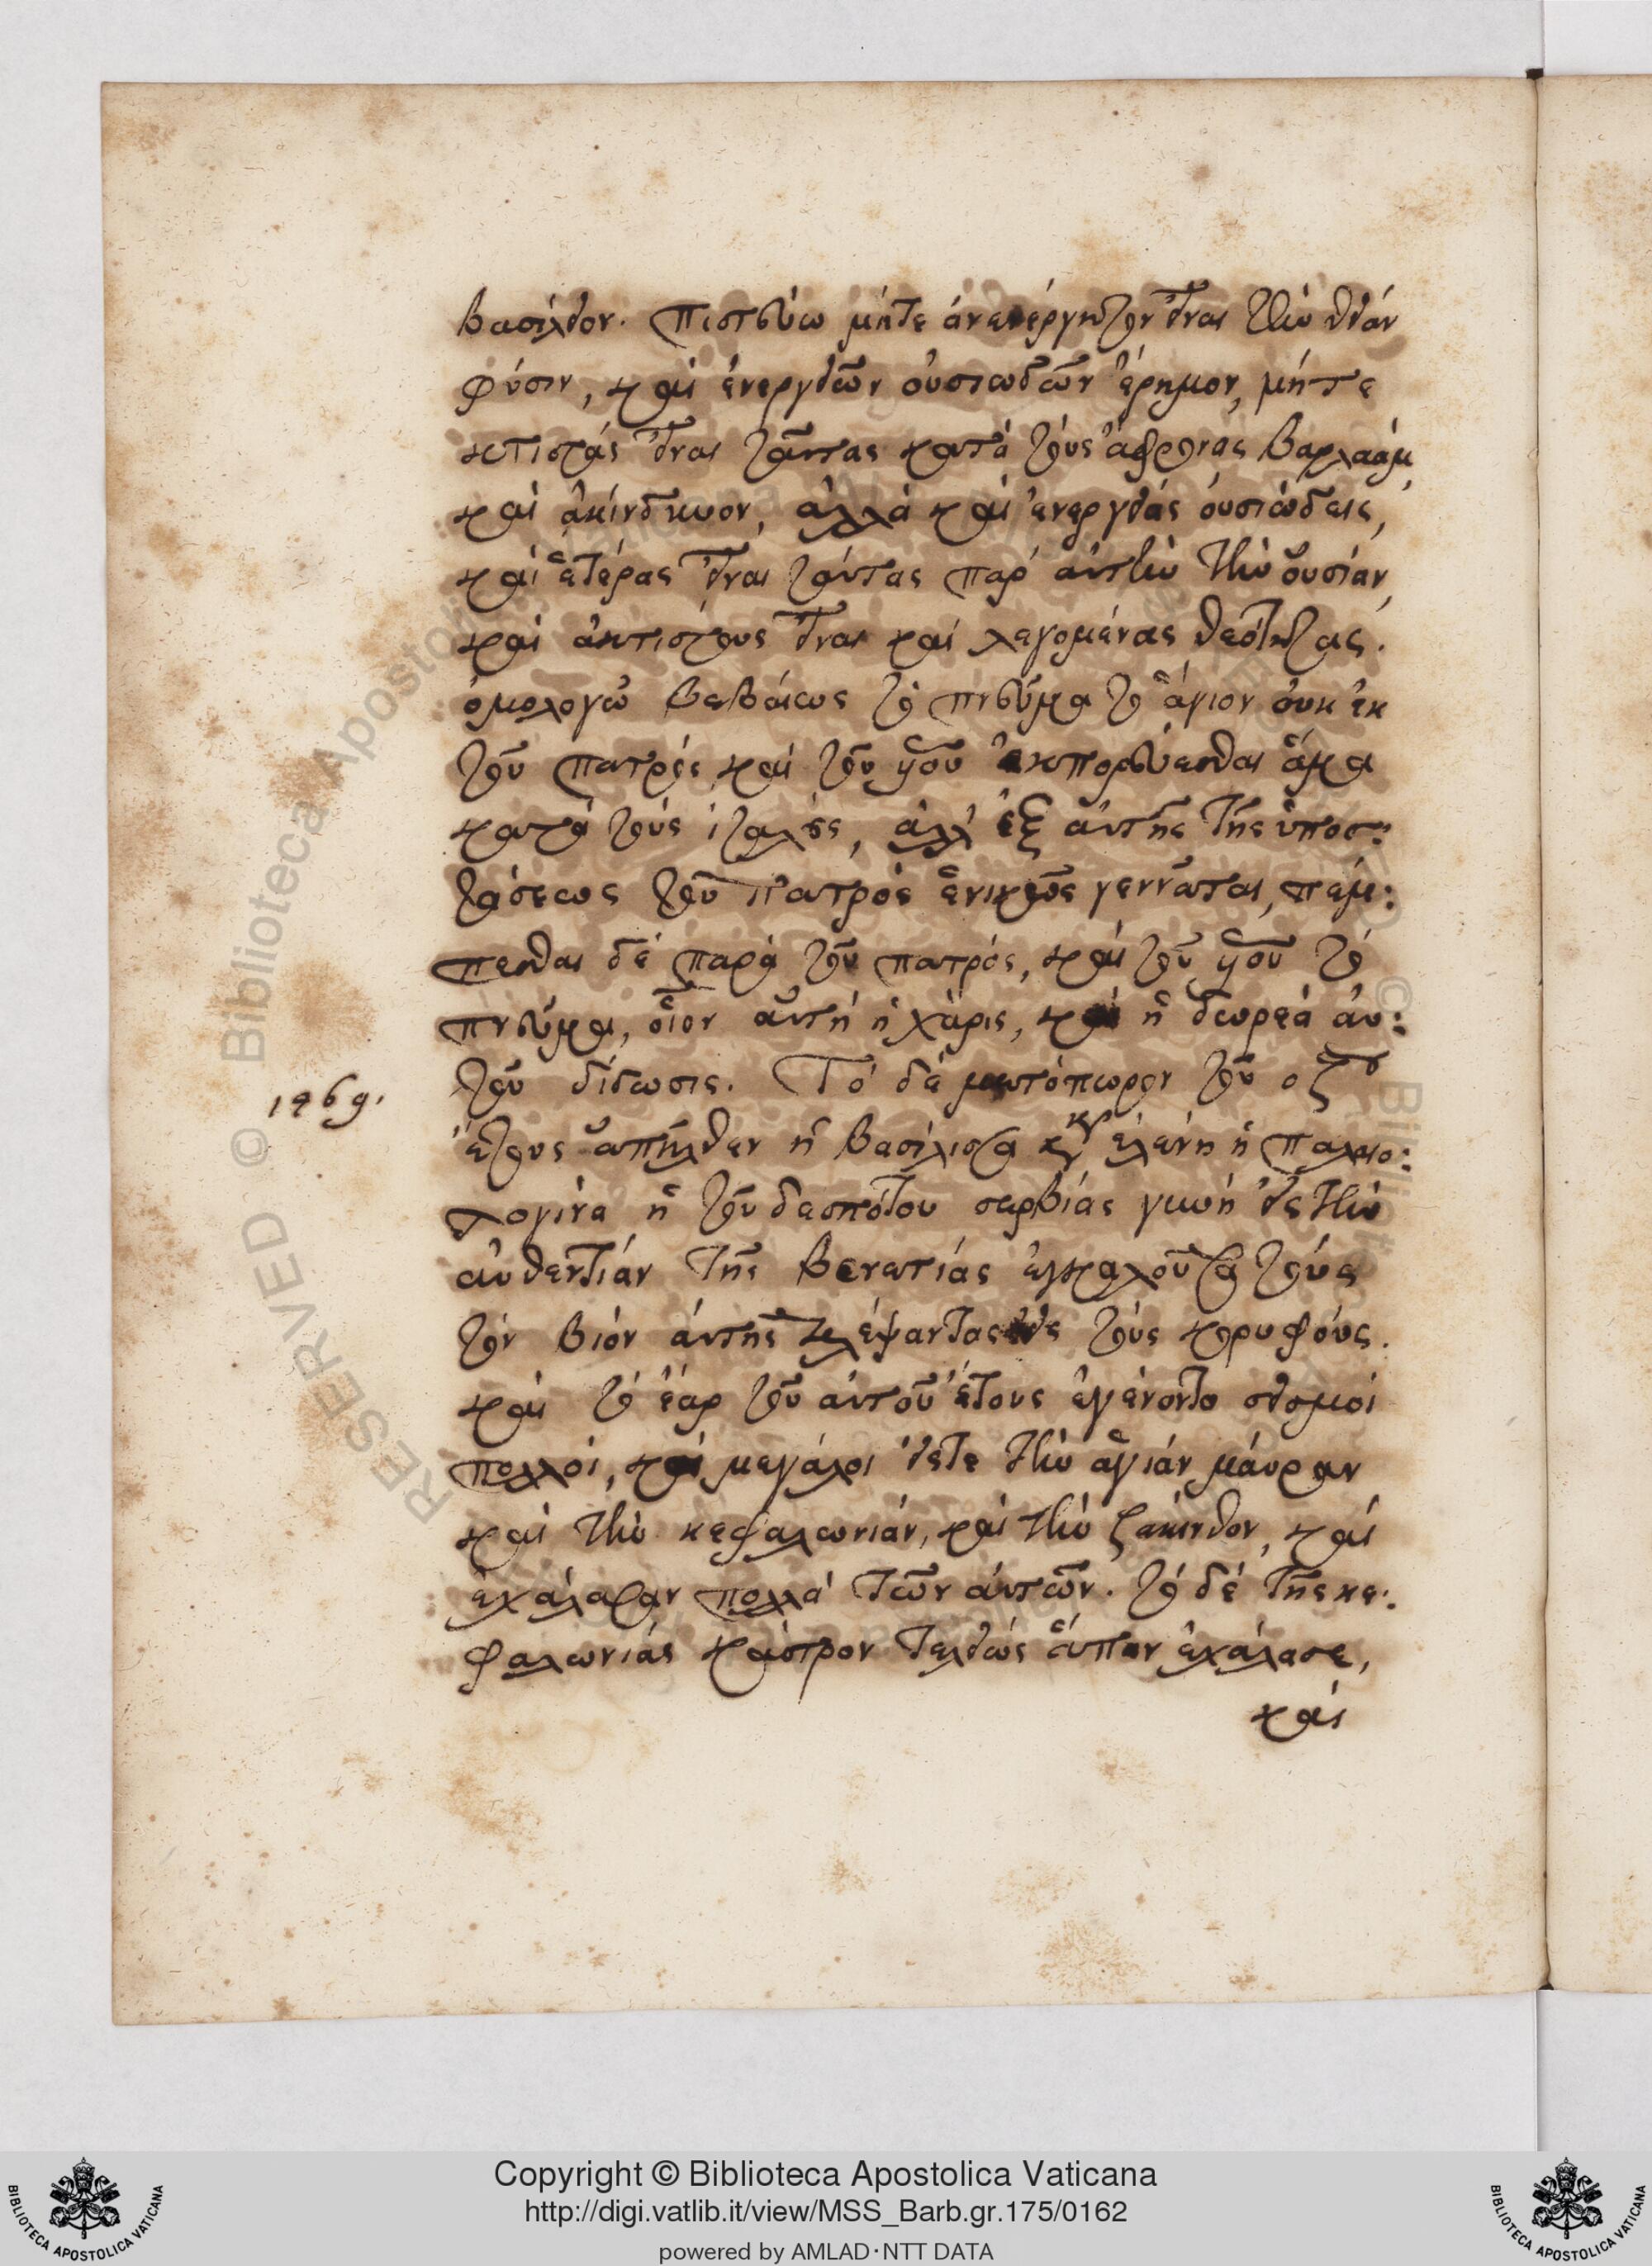 βασίλειον. πιστεύω μήτε ἀνενέργητον εἶναι τὴν θείαν
φύσιν, καὶ ἐνεργειῶν οὐσιωδῶν ἔρημον, μήτε
κτιστάς εἶναι ταύτας κατὰ τοὺς ἄφρονας βαρλαάμ,
καὶ ἀκίνδυνον, ἀλλὰ καὶ ἐνεργείας οὐσιώδεις,
καὶ ἑτέρας εἶναι ταύτας παρ' αὐτὴν τὴν οὐσίαν,
καὶ ἀκτίστους εἶναι καὶ λεγομένας θεότητας.
ὁμολογῶ βεβαίως τὸ πνεῦμα τὸ ἅγιον οὐκ ἐκ
τοῦ πατρός καὶ τοῦ υἱοῦ ἐκπορεύεσθαι ἅμα
κατὰ τοὺς ἰταλούς, ἀλλ' ἐξ αὐτῆς τῆς ὑποσ:
τάσεως τοῦ πατρός ἑνικῶς γεννᾶται, πέμ:
πεσθαι δέ παρὰ τοῦ πατρός, καὶ τοῦ υἱοῦ τὸ
πνεῦμα, οἷον αὐτή ἡ χάρις, καὶ ἡ δωρεά αὐ:
τοῦ δίδωσις. Τὸ δὲ μετόπωρον τοῦ οζου
1469. ἔτους ἀπῆλθεν ἡ βασίλισσα κυρ ἑλένη ἡ παλαιο:
λογίνα ἡ τοῦ δεσπότου σερβίας γυνή εἰς τὴν
αὐθεντίαν τῆς βενετίας ἐγκαλοῦσα τοὺς
τὸν βιόν αὐτῆς κλέψαντας εἰς τοὺς κορυφούς.
καὶ τὸ ἔαρ τοῦ αὐτοῦ ἔτους ἐγένοντο σεισμοί
πολλοί, καὶ μεγάλοι εἴςτε τὴν ἁγίαν μαύραν
καὶ τὴν κεφαλωνιάν, καὶ τὴν ζάκινθον, καὶ
ἐχάλασαν πολλά τῶν αὐτῶν. τὸ δέ τῆς κε:
φαλωνιάς κάστρον τελείως εὔπαν ἐχάλασε,
καὶ
Copyright © Biblioteca Apostolica Vaticana
http://digi.vatlib.it/view/MSS_Barb.gr.175/0162
powered by AMLAD·NTT DATA